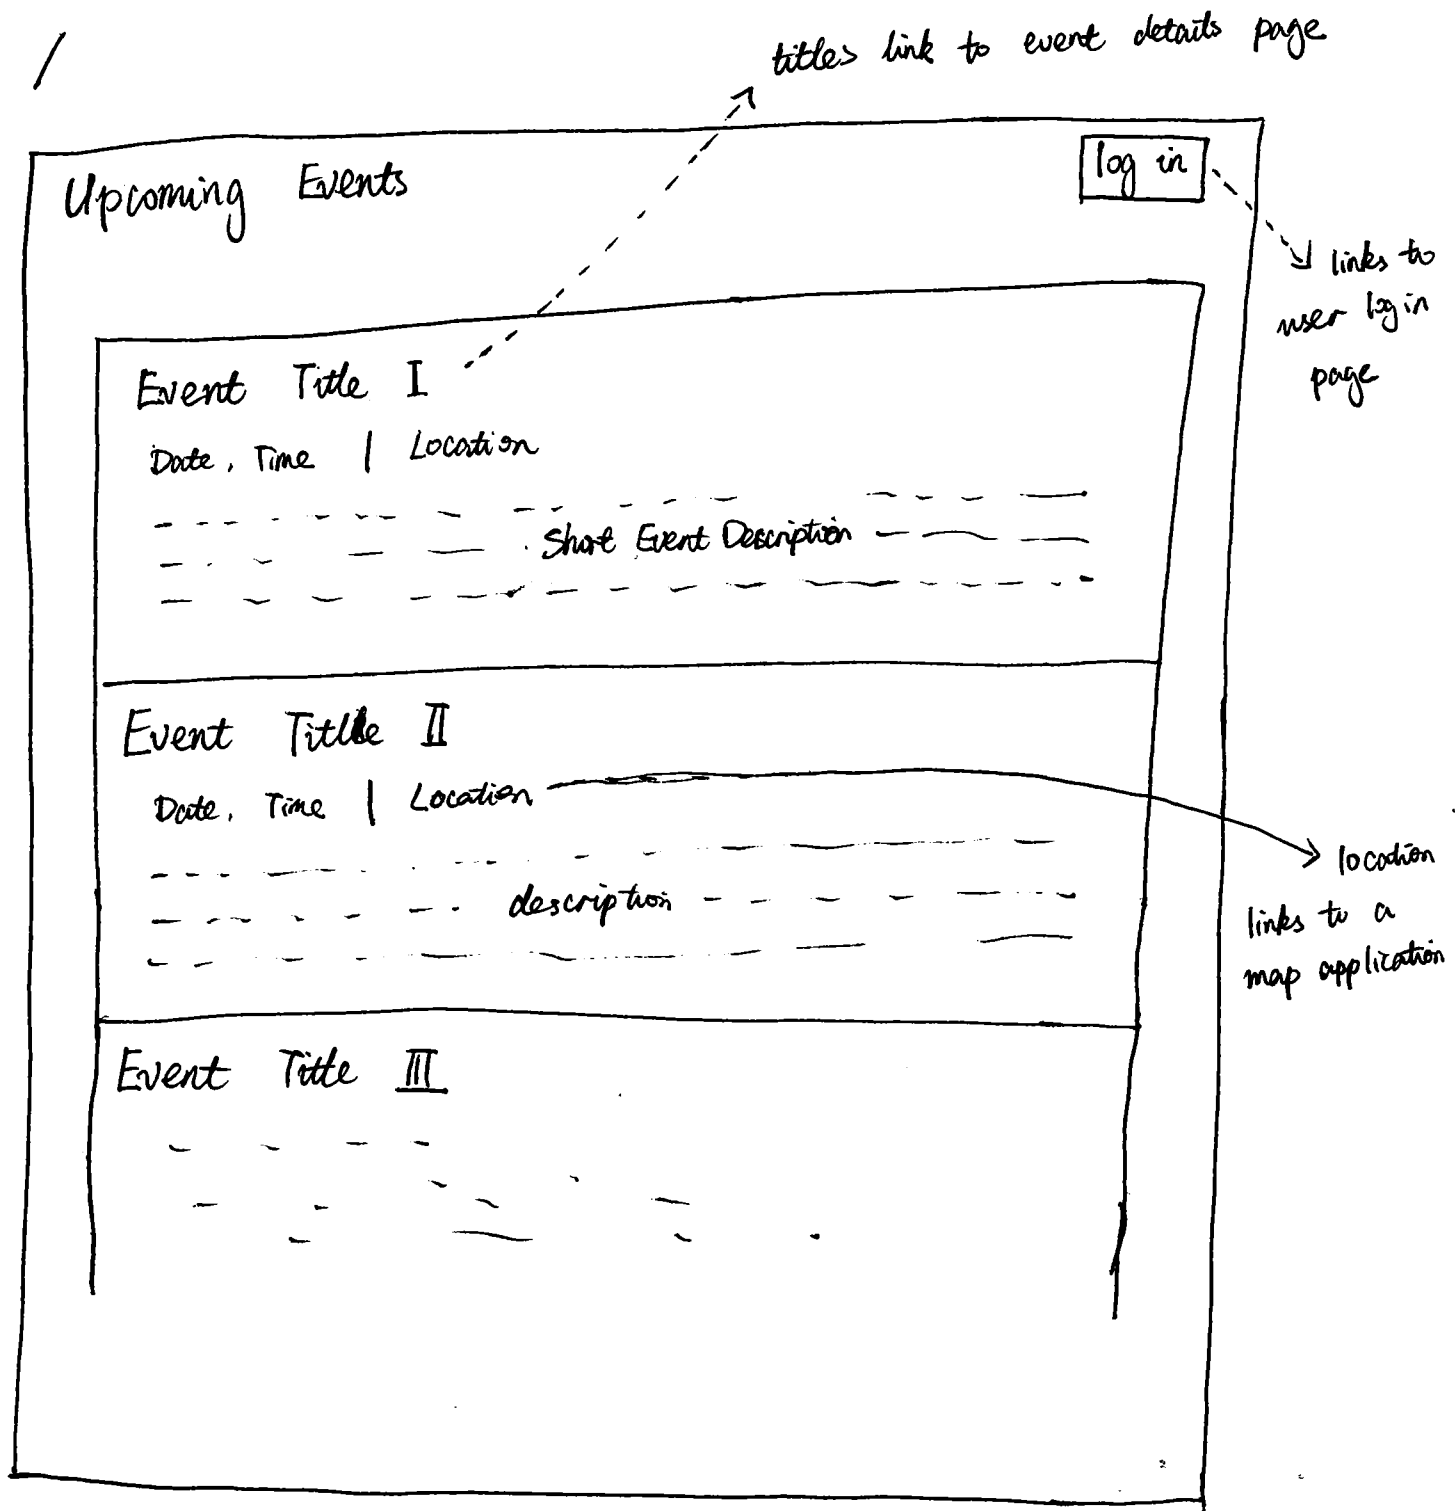 /
titles link to event details page
Upcoming Events
log in
links to
user log in
page
Event Title I
Date, Time | Location
Short Event Description
Event Title II
Date, Time | Location
location
links to a
map application
description
Event Title III